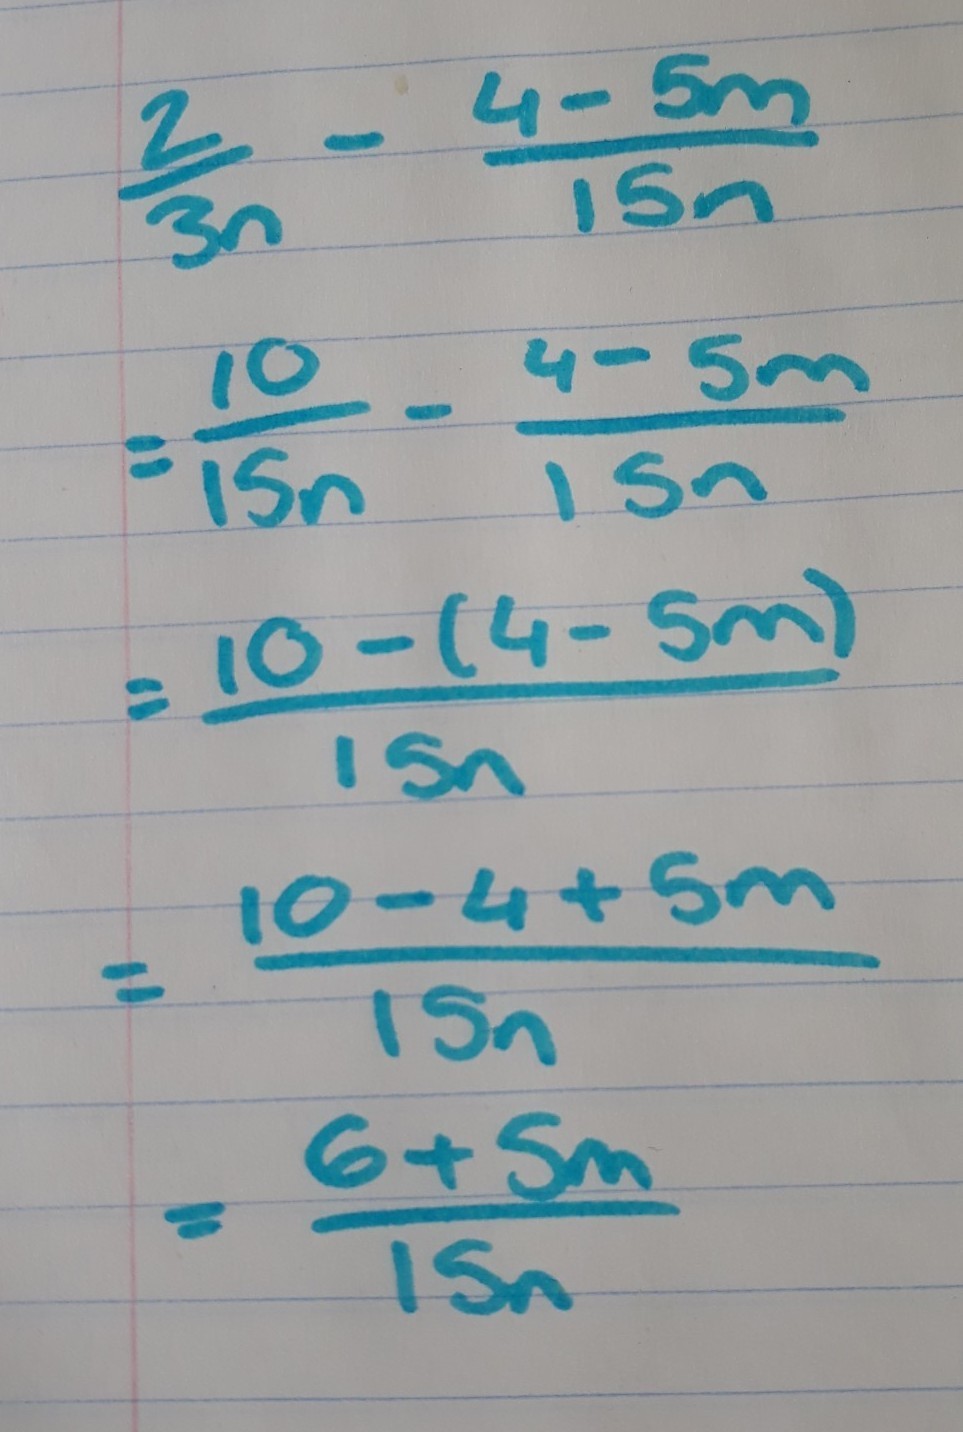 2/3n - (4 - 5m)/15n
= 10/15n - (4 - 5m)/15n
= (10 - (4 - 5m))/15n
= (10 - 4 + 5m)/15n
= (6 + 5m)/15n